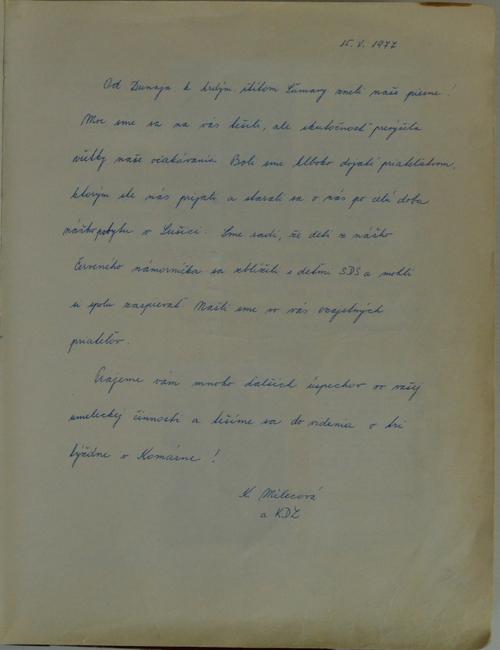 15. V. 1977
Od Dunaja k štítom Šumavy zneli naše piesne!
Moc sme sa na vás tešili, ale skutočnosť prevýšila
všetky naše očakávania. Boli sme hlboko dojatí priateľstvom,
ktorým ste nás prijali a starali sa o nás po celú dobu
nášho pobytu v Sušici. Sme radi, že deti z nášho
Červeného námorníka sa zblížili s deťmi SDS a mohli
si spolu zaspievať. Našli sme vo vás ozajstných
priateľov.
Prajeme vám mnoho ďalších úspechov vo vašej
umeleckej činnosti a tešíme sa do videnia o tri
týždne v Komárne!
K. Milecová
a KDZ